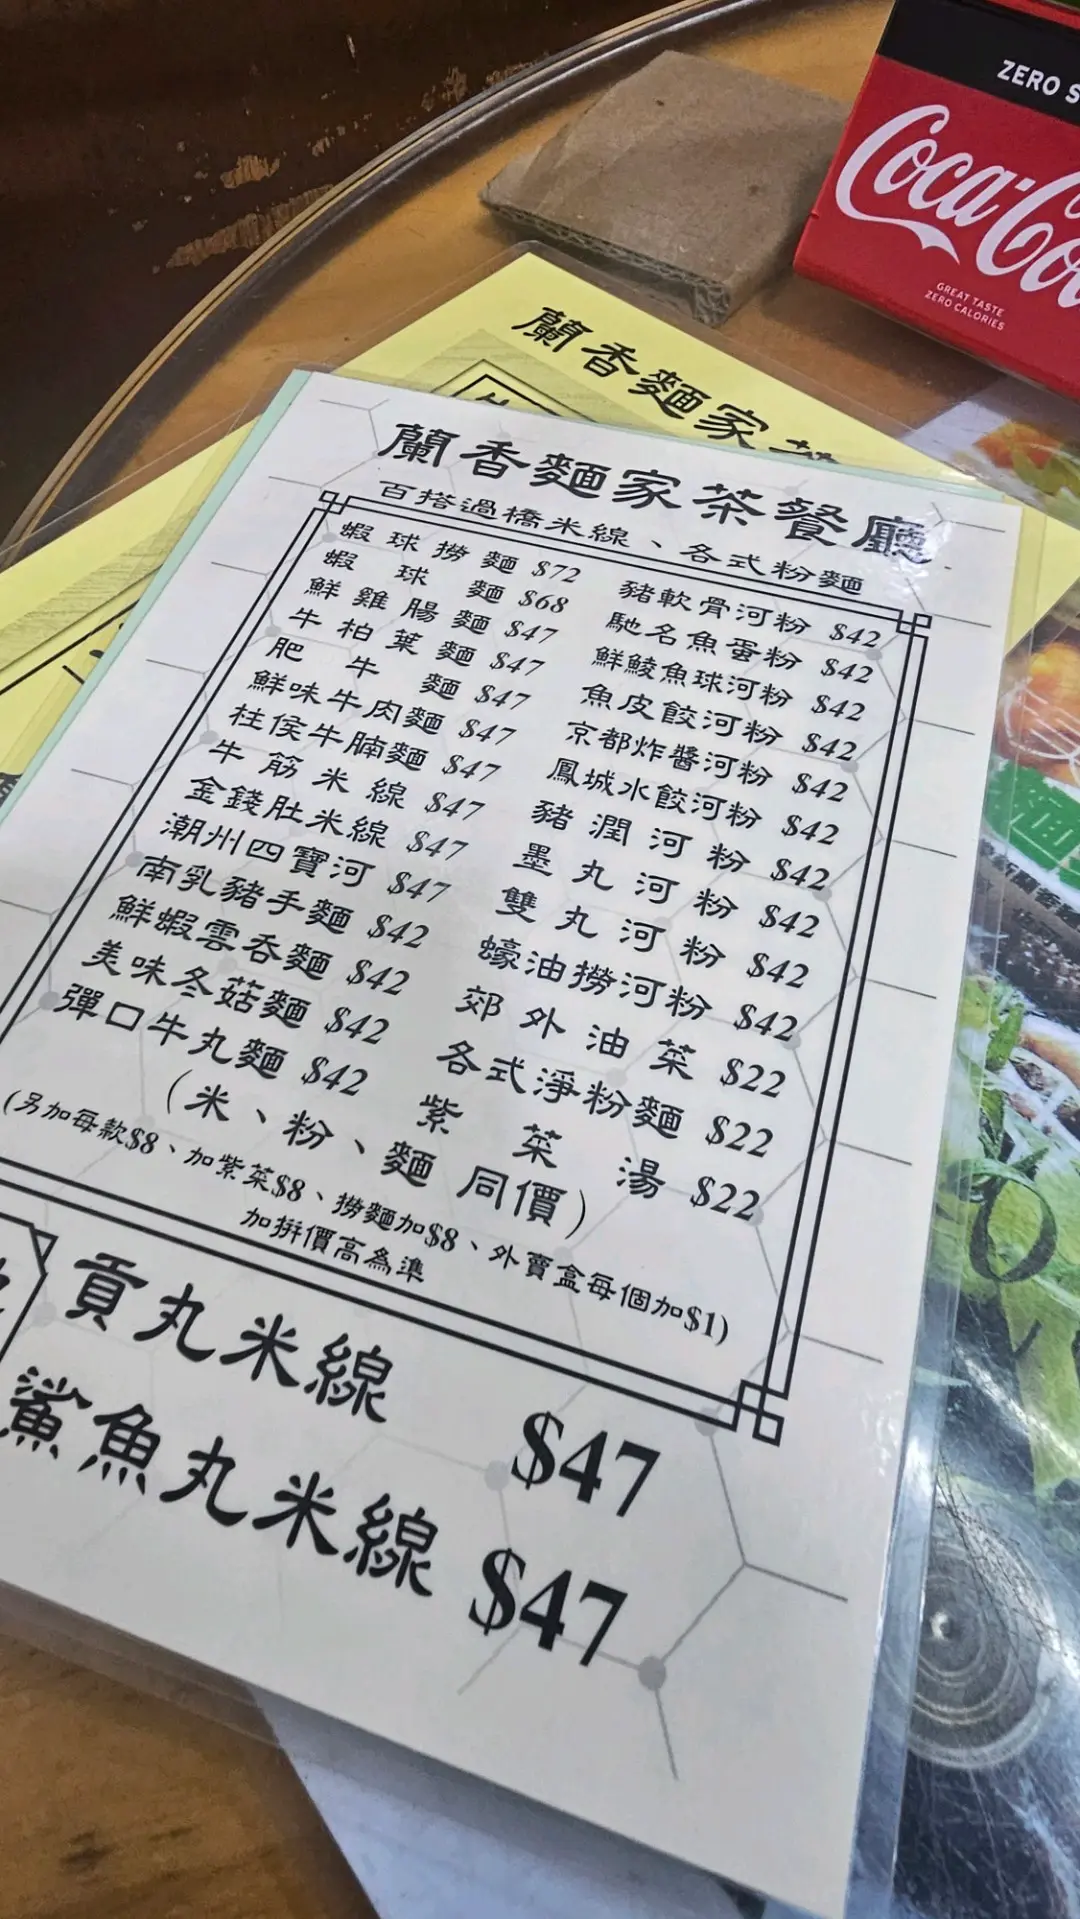 ZERO S
Coca-Co
GREAT TASTE
ZERO CALORIES
蘭香麵家茶
蘭香麵家茶餐廳
百搭過橋米線、各式粉麵
蝦球撈麵 $72
蝦球麵 $68
鮮雞腸麵 $47
牛柏葉麵 $47
肥牛麵 $47
鮮味牛肉麵 $47
柱侯牛腩麵 $47
牛筋米線 $47
金錢肚米線 $47
潮州四寶河 $47
南乳豬手麵 $42
鮮蝦雲吞麵 $42
美味冬菇麵 $42
彈口牛丸麵 $42
豬軟骨河粉 $42
馳名魚蛋粉 $42
鮮鯪魚球河粉 $42
魚皮餃河粉 $42
京都炸醬河粉 $42
鳳城水餃河粉 $42
豬潤河粉 $42
墨丸河粉 $42
雙丸河粉 $42
蠔油撈河粉 $42
郊外油菜 $22
各式淨粉麵 $22
紫菜湯 $22
（米、粉、麵 同價）
(另加每款$8、加紫菜$8、撈麵加$8、外賣盒每個加$1)
加拼價高為準
貢丸米線 $47
鯊魚丸米線 $47